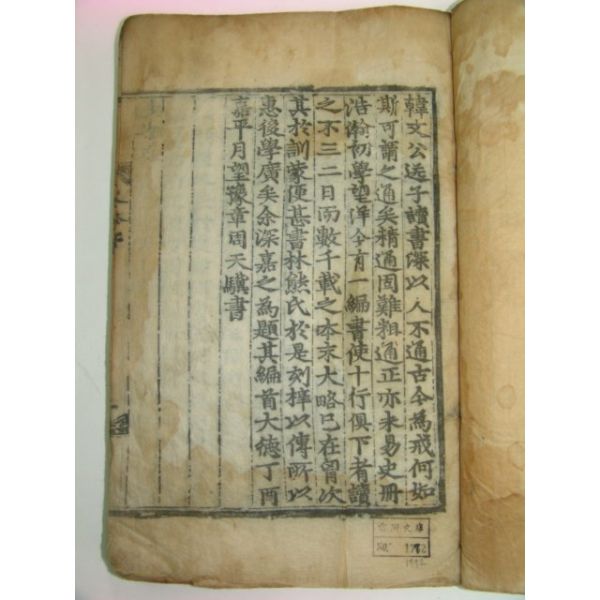 韓文公送子讀書深以人不通古今為戒何如
斯可謂之通矣精通固難粗通正亦未易史冊
浩瀚初學望洋今有一編書使十行俱下者讀
之不三二日而數千載之本末大略已在胷次
其於訓蒙便甚書林熊氏於是刻梓以傳所以
惠後學廣矣余深嘉之為題其編首大德丁酉
嘉平月望豫章周天驥書